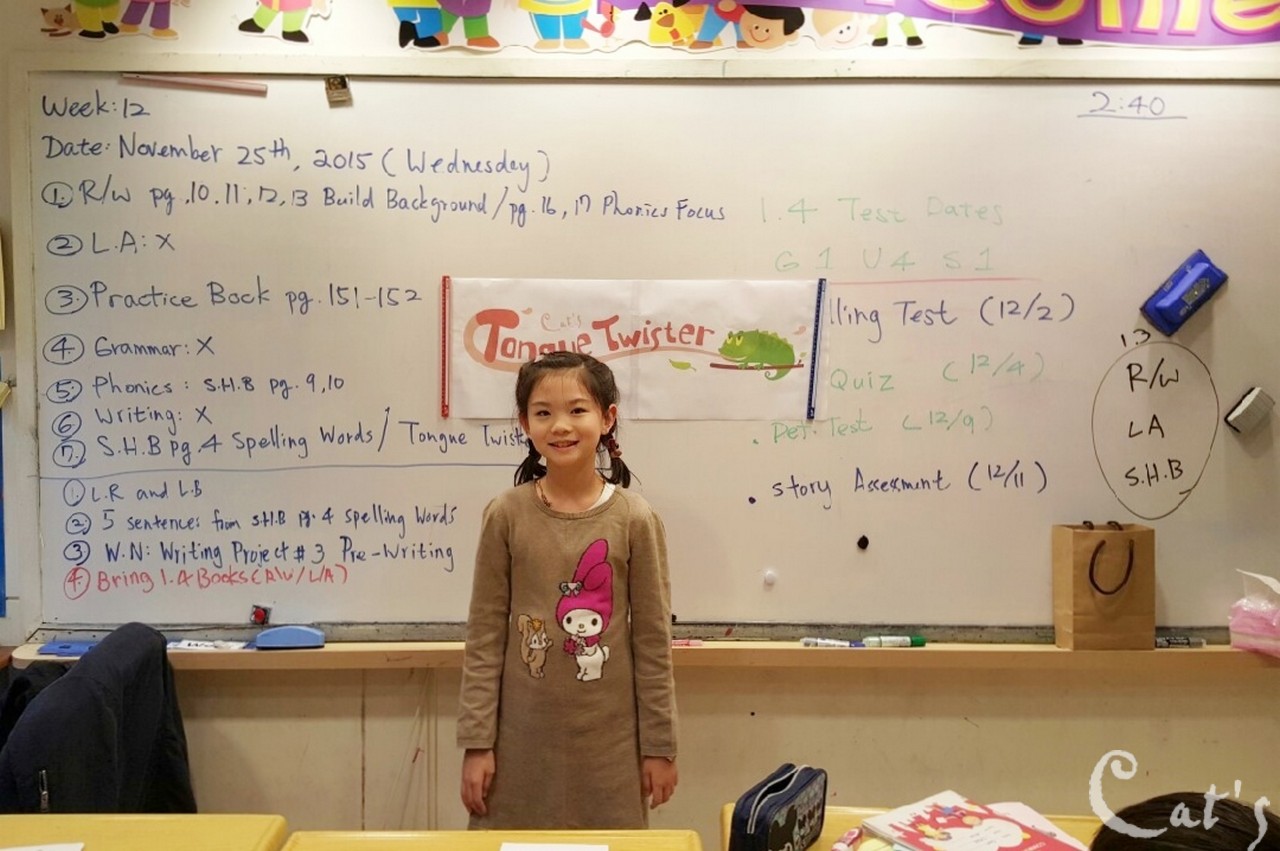 Week: 12
Date: November 25th, 2015 (Wednesday)
① R/W pg. 10, 11, 12, 13 Build Background / pg. 16, 17 Phonics Focus
② L.A: X
③ Practice Book pg. 151-152
④ Grammar: X
⑤ Phonics: S.H.B pg. 9, 10
⑥ Writing: X
⑦ S.H.B pg. 4 Spelling Words / Tongue Twist
① L.R and L.B
② 5 sentences from S.H.B pg. 4 spelling words
③ W.N: Writing Project #3 Pre-Writing
④ Bring 1.4 Books (R/W / L/A)
Cat's
Tongue Twister
2:40
1.4 Test Dates
G1 U4 S1
lling Test (12/2)
Quiz (12/4)
. Per. Test (12/9)
. Story Assessment (12/11)
1.3
R/W
LA
S.H.B
Cat's